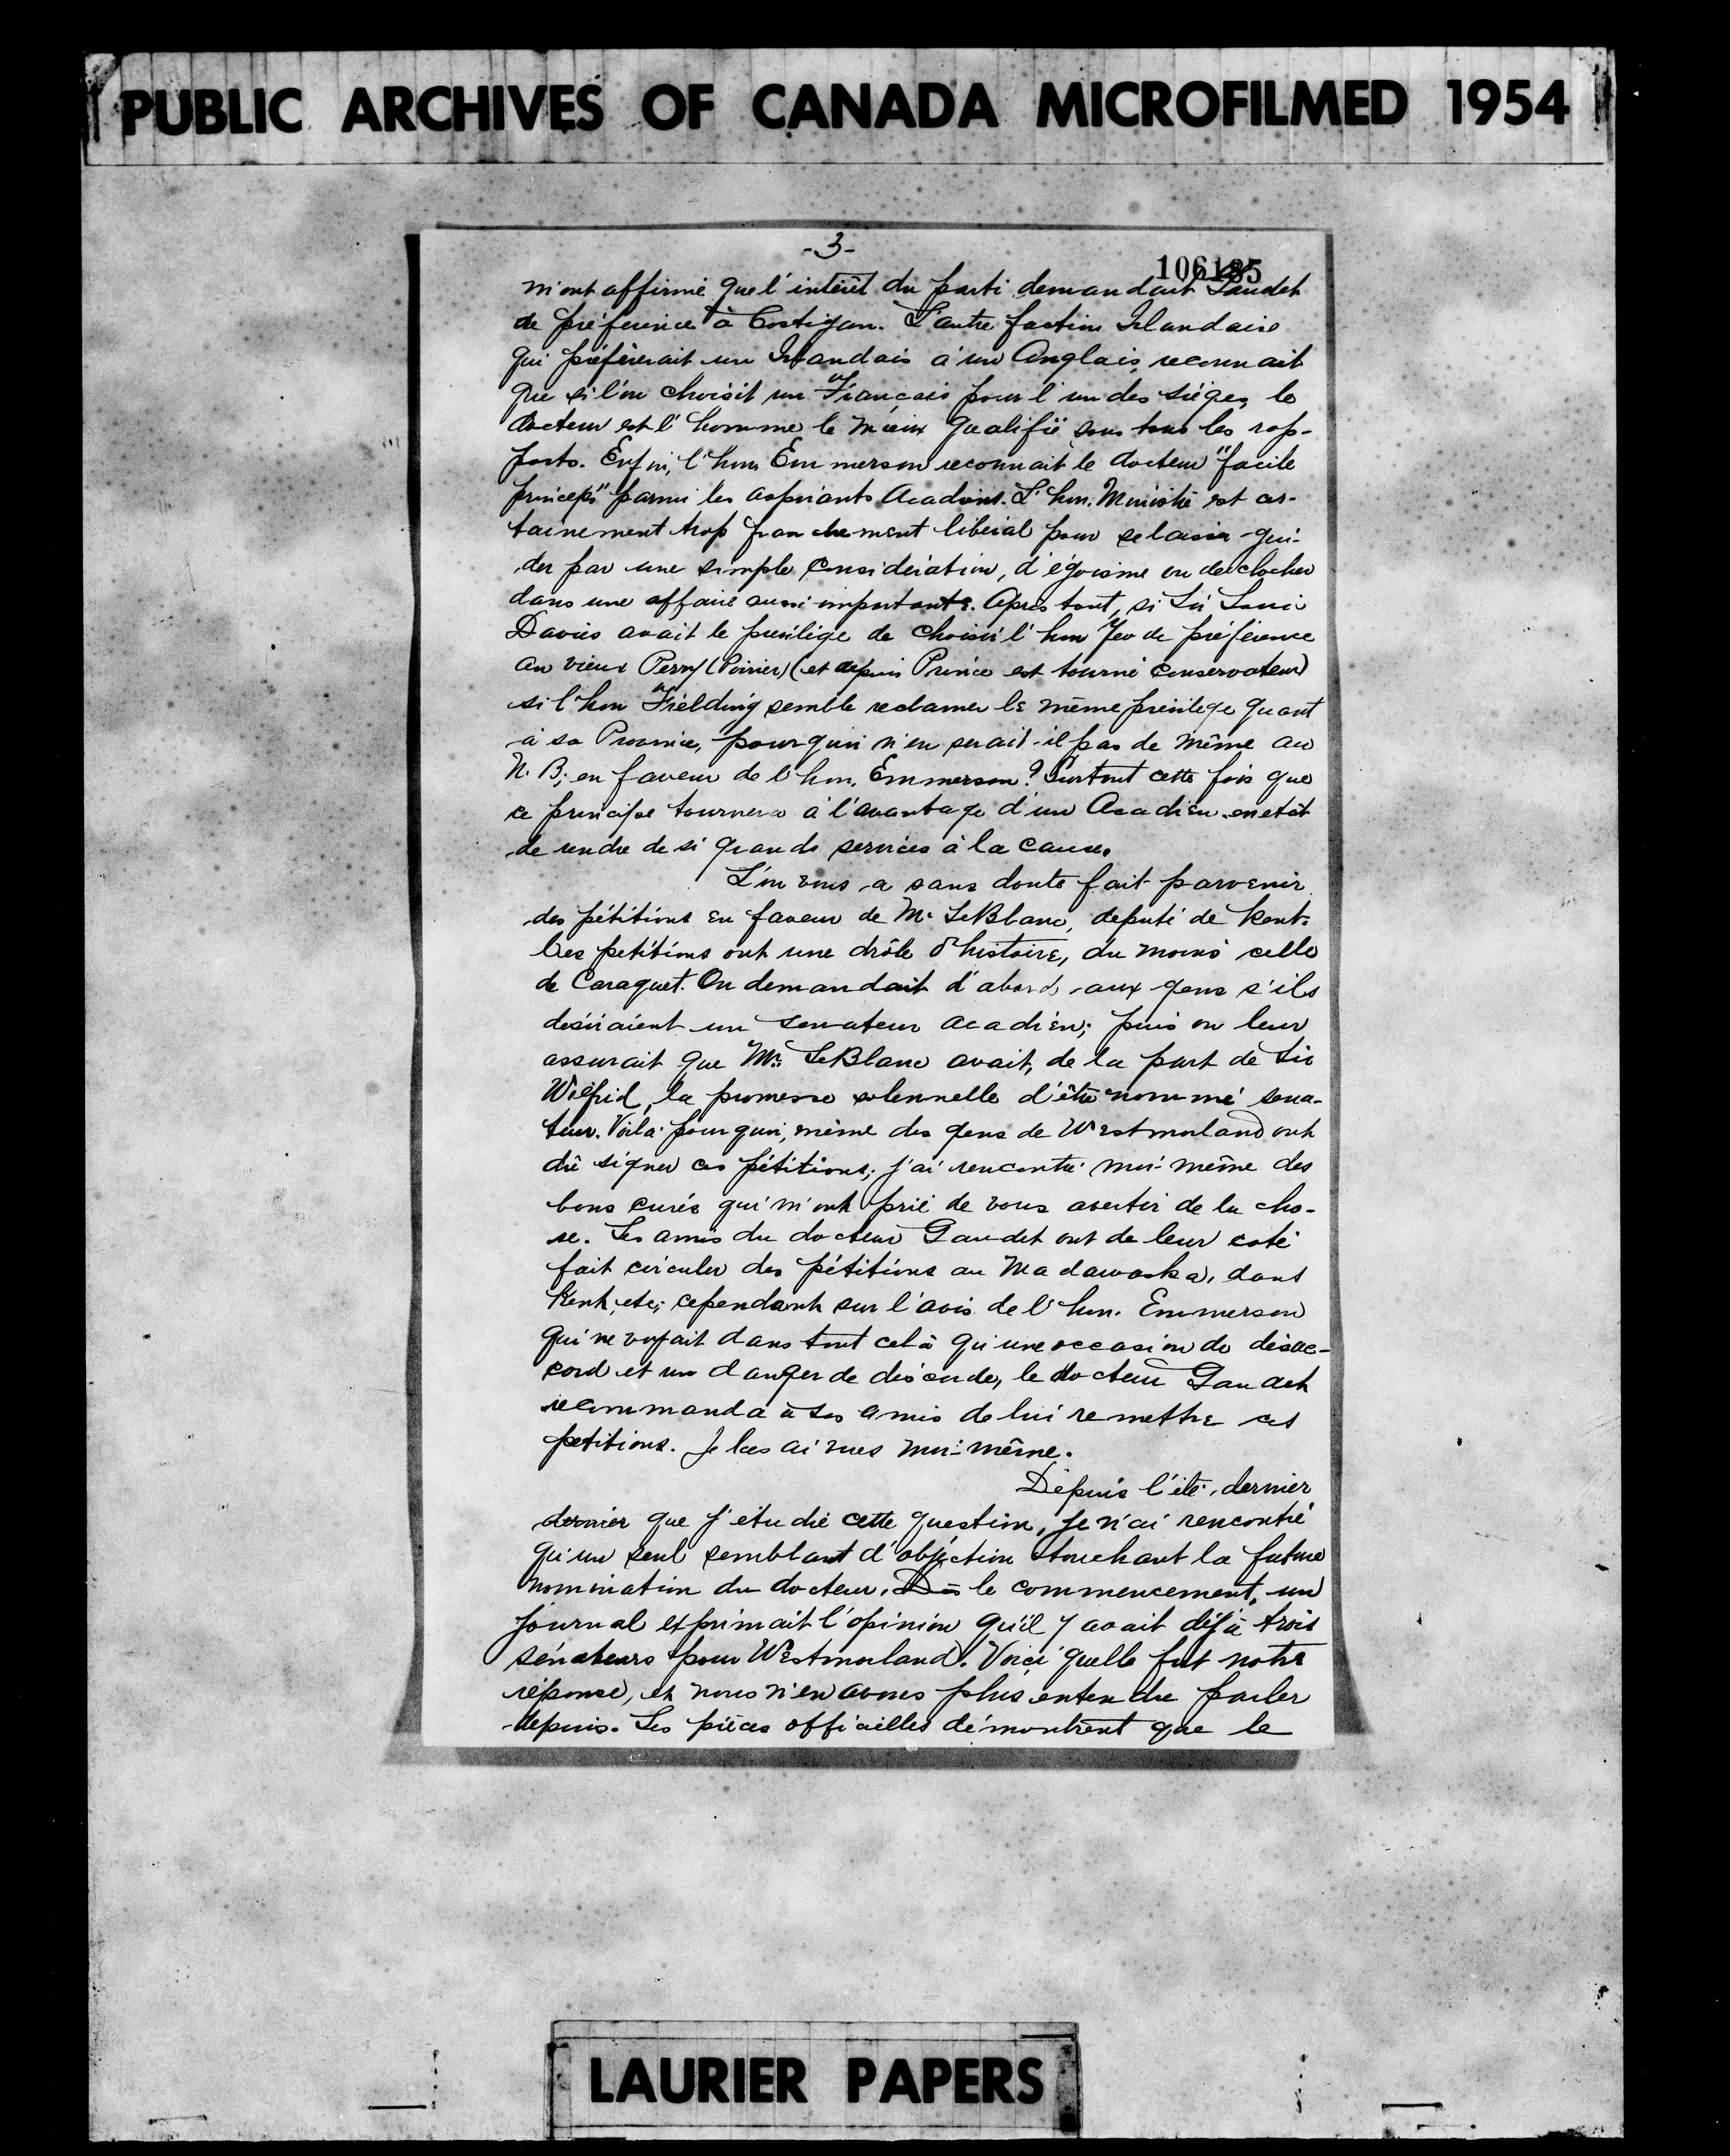 PUBLIC ARCHIVES OF CANADA MICROFILMED 1954
-3-
106185
m'ont affirmé que l'intérêt du parti demandait Gaudet
de préférence à Costigan. L'autre faction Irlandaise
qui préfèrerait un Irlandais à un Anglais, reconnait
que si l'on choisit un Français pour l'un des sièges, le
docteur est l'homme le mieux qualifié sous tous les rap-
ports. Enfin, l'hon. Emmerson reconnait le docteur "facile
princeps" parmi les aspirants Acadiens. L'hon. Ministre est cer-
tainement trop franchement libéral pour se laisser gui-
der par une simple considération, d'égoisme ou de clocher
dans une affaire aussi importante. Après tout, si Sir Louis
Davies avait le privilège de choisir l'hon Yeo de préférence
au vieux Perry (Poirier) (et depuis Prince est tourné conservateur)
si l'hon Fielding semble réclamer le même privilège quant
à sa Province, pourquoi n'en serait-il pas de même au
N. B. en faveur de l'hon. Emmerson? Surtout cette fois que
ce principe tournera à l'avantage d'un Acadien en état
de rendre de si grands services à la cause.
L'on vous a sans doute fait parvenir
des pétitions en faveur de Mr LeBlanc, député de Kent.
Ces petitions ont une drôle d'histoire, du moins celle
de Caraquet. On demandait d'abord aux gens s'ils
désiraient un senateur acadien; puis on leur
assurait que Mr. LeBlanc avait, de la part de Sir
Wilfrid, la promesse solennelle d'être nommé séna-
teur. Voilà pourquoi, même des gens de Westmorland ont
dû signer ces pétitions; j'ai rencontré moi-même des
bons curés qui m'ont prié de vous avertir de la cho-
se. Les amis du docteur Gaudet ont de leur coté
fait circuler des pétitions au Madawaska, dans
Kent, etc; cependant sur l'avis de l'hon. Emmerson
qui ne voyait dans tout celà qu'une occasion de désac-
cord et un danger de discorde, le docteur Gaudet
recommanda à ses amis de lui remettre ces
petitions. Je les ai vues moi-même.
Depuis l'été dernier
dernier que j'étudie cette question, je n'ai rencontré
qu'un seul semblant d'objection touchant la future
nomination du docteur. Dès le commencement, un
journal exprimait l'opinion qu'il y avait déjà trois
sénateurs pour Westmorland. Voici quelle fut notre
réponse, et nous n'en avons plus entendu parler
depuis. Les pièces officielles démontrent que le
LAURIER PAPERS